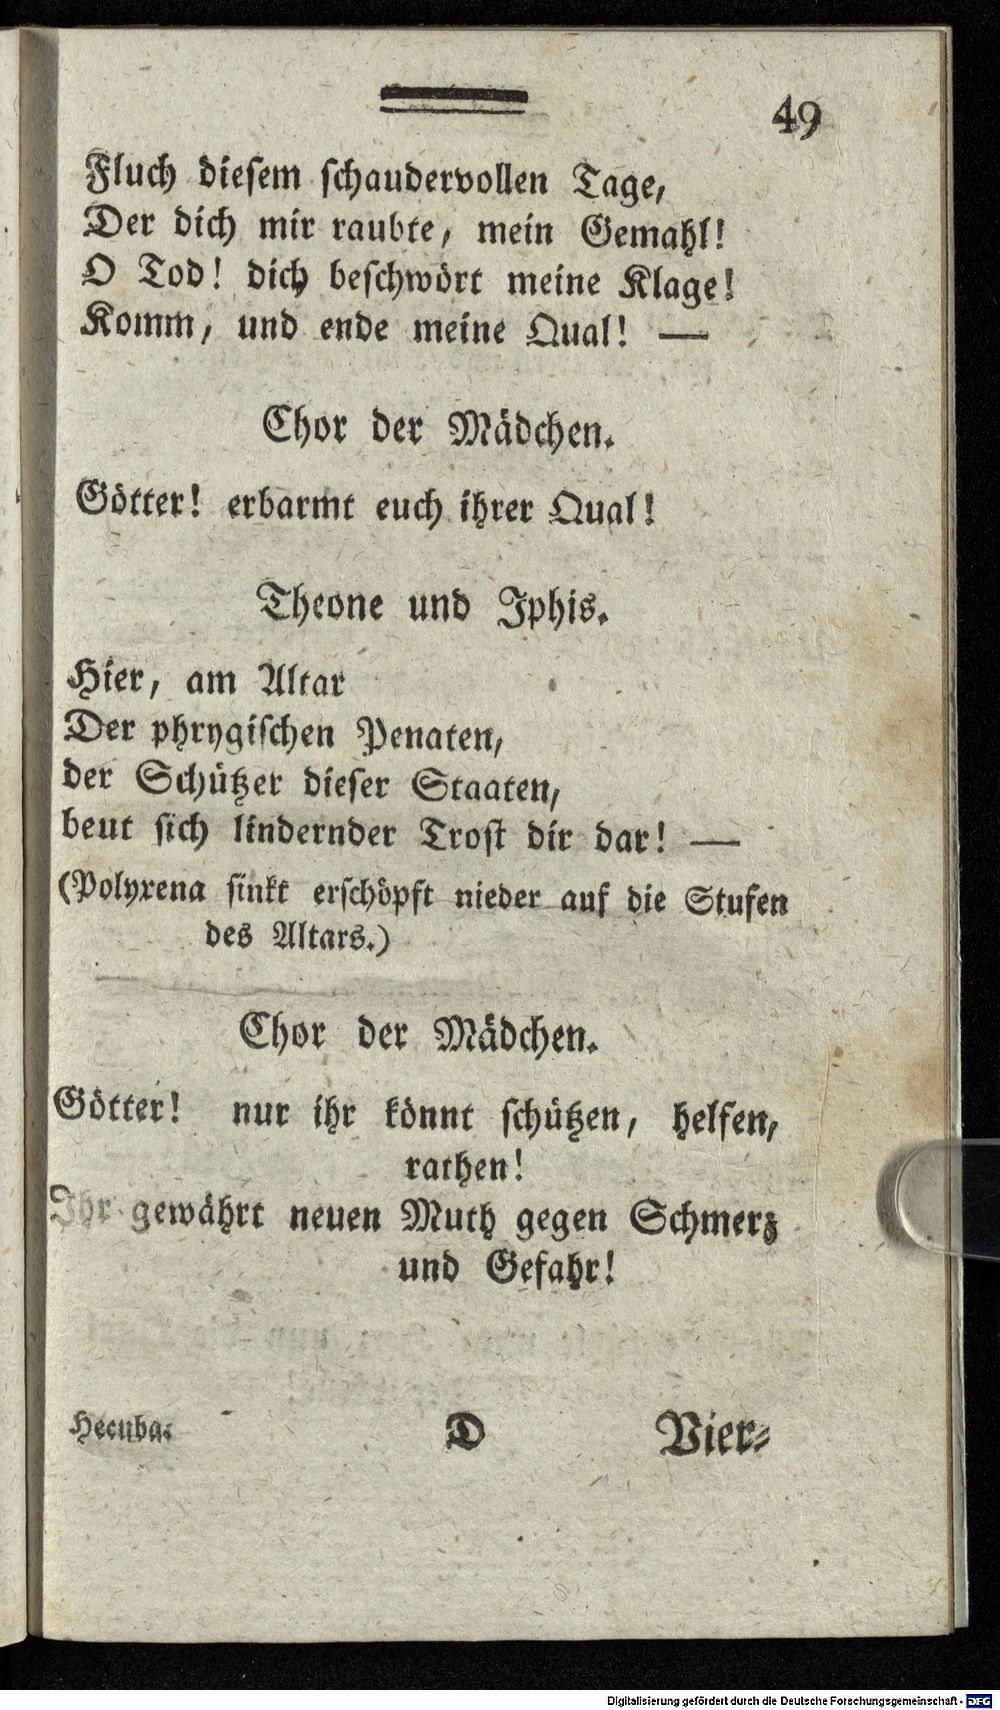 49
Fluch diesem schaudervollen Tage,
Der dich mir raubte, mein Gemahl!
O Tod! dich beschwört meine Klage!
Komm, und ende meine Qual! —
Chor der Mädchen.
Götter! erbarmt euch ihrer Qual!
Theone und Iphis.
Hier, am Altar
Der phrygischen Penaten,
der Schützer dieser Staaten,
beut sich lindernder Trost dir dar! —
(Polyxena sinkt erschöpft nieder auf die Stufen
des Altars.)
Chor der Mädchen.
Götter! nur ihr könnt schützen, helfen,
rathen!
Ihr gewährt neuen Muth gegen Schmerz
und Gefahr!
Hecuba. D Vier-
Digitalisierung gefördert durch die Deutsche Forschungsgemeinschaft - DFG